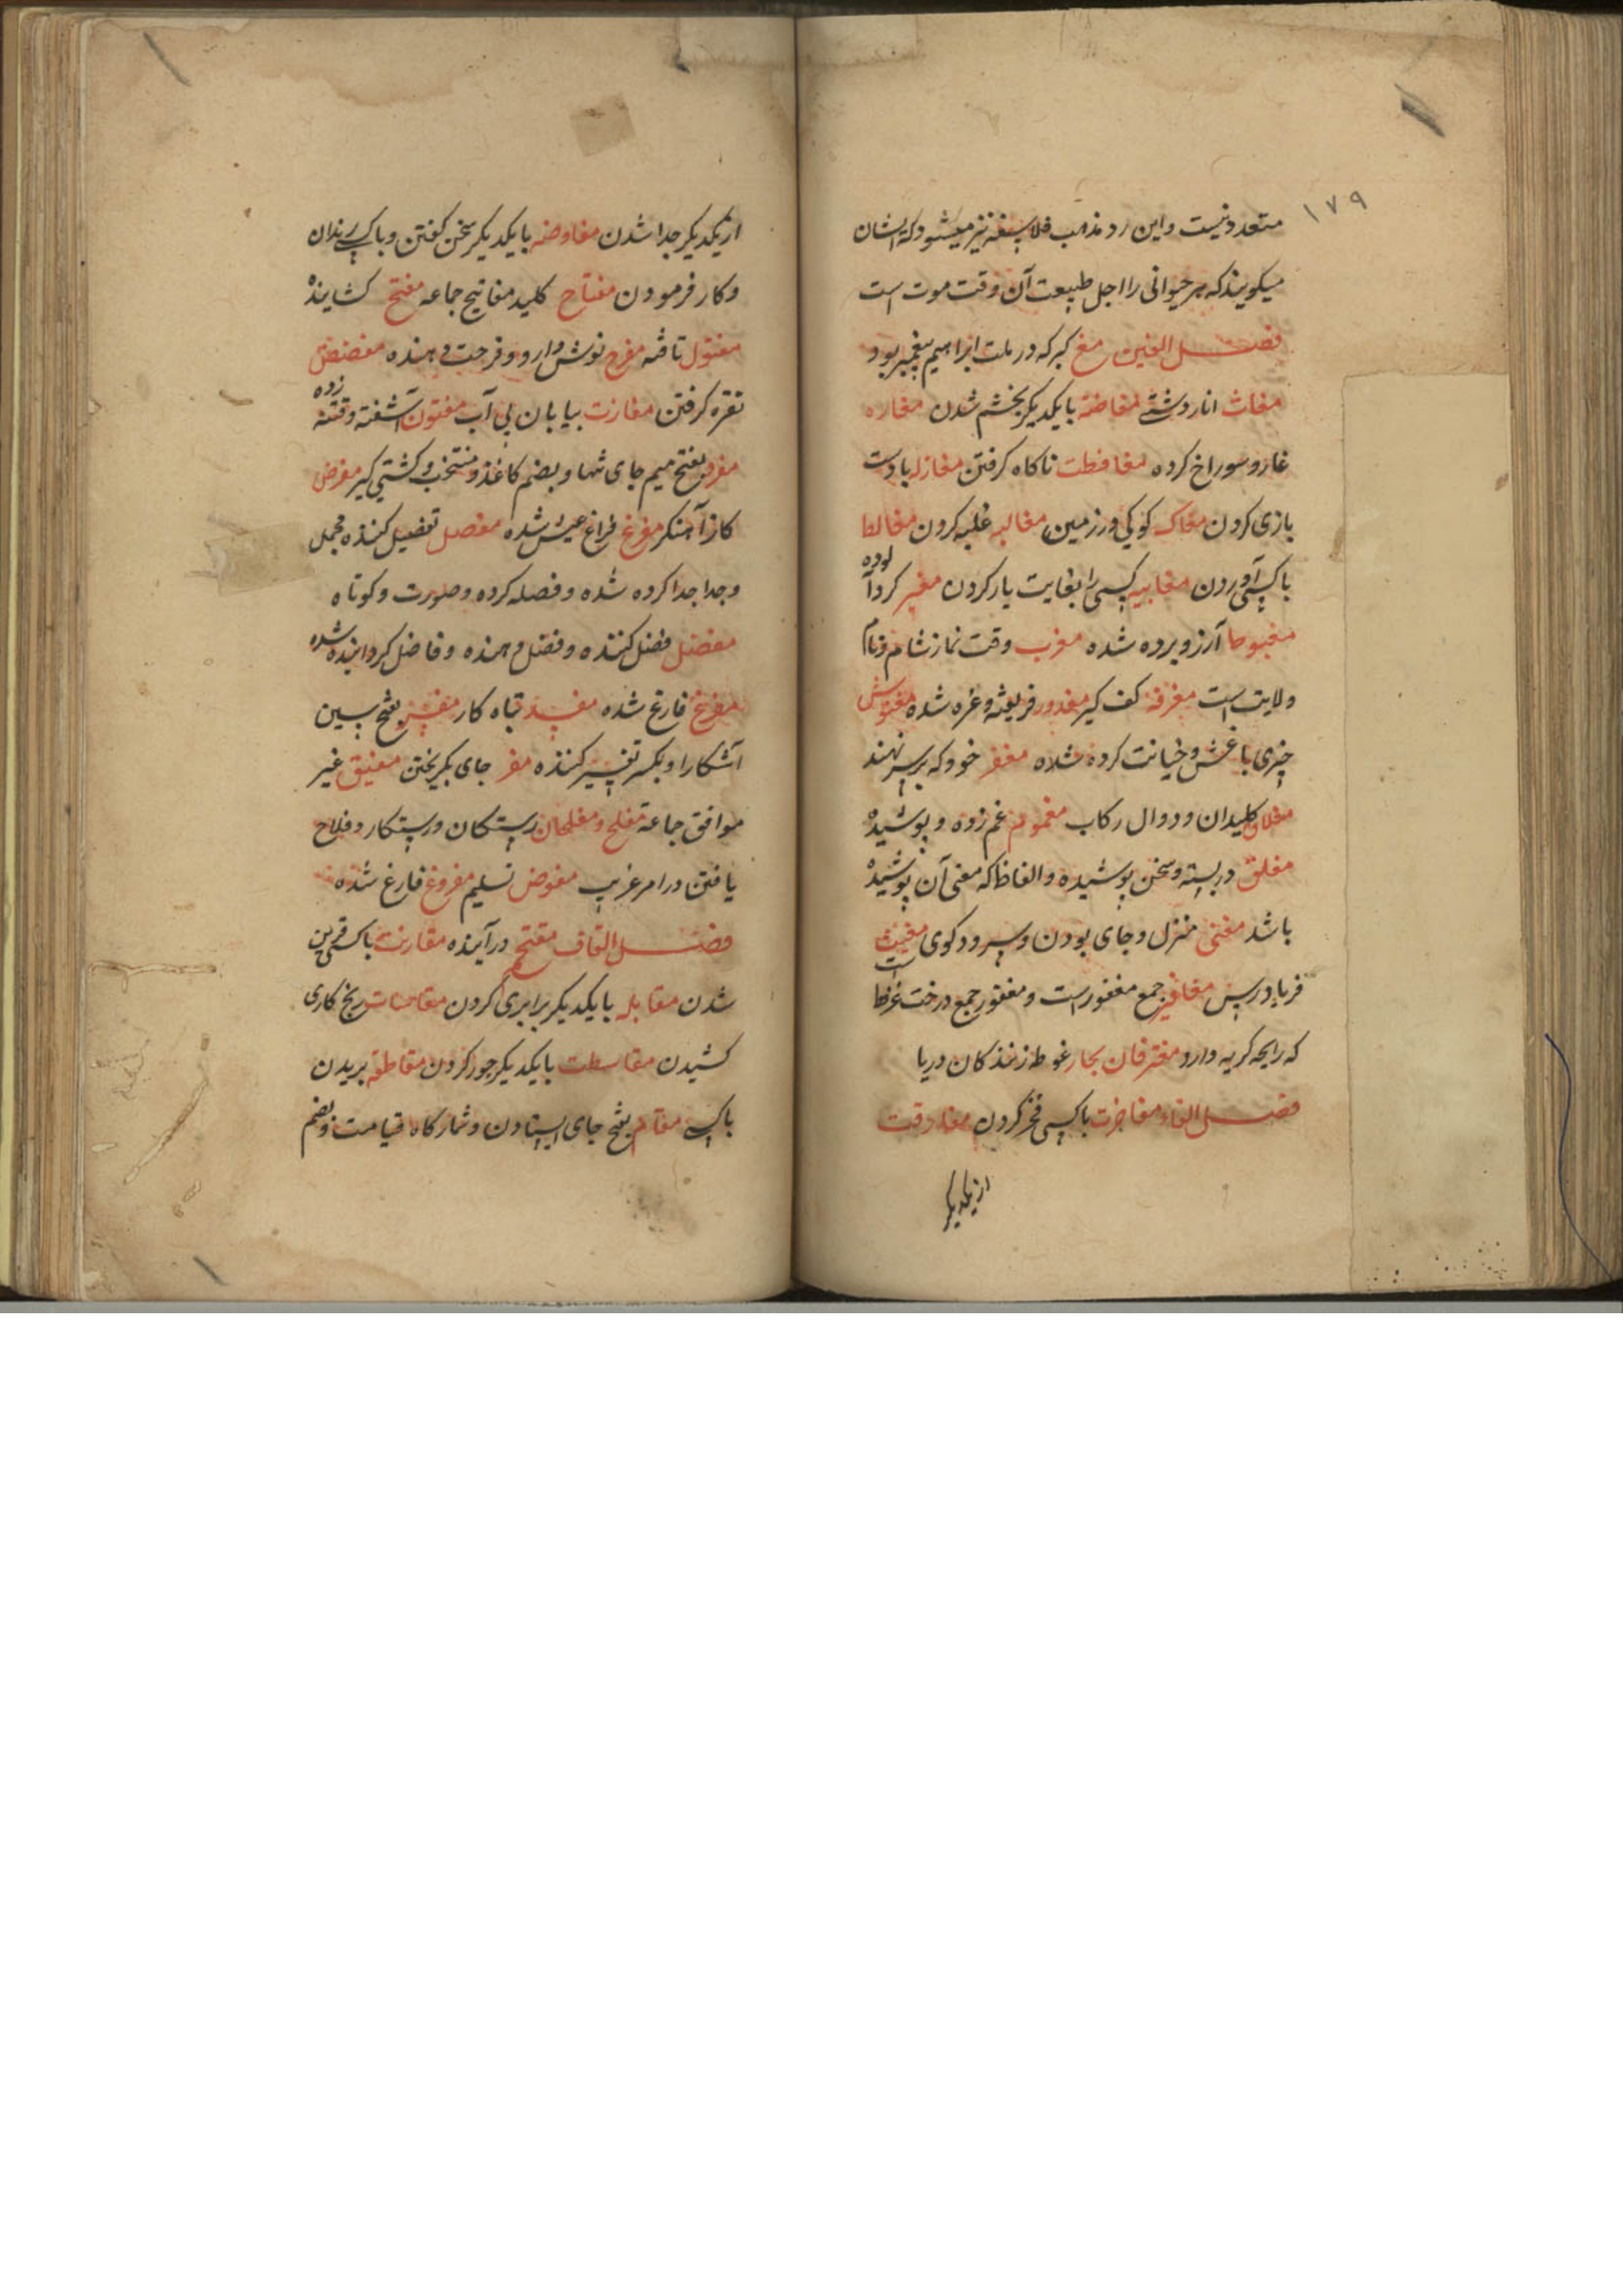 ۱۷۹
متعدد نیست و این رد مذهب فلاسفه نیز میشود که ایشان
میکویند که هر حیوانی را اجل طبیعت آن وقت موت است
فصل الغین مغ کبر که در ملت ابراهیم پیغمبر بود
مغاث انار دشتی مغاضبة با یکدیکر بخشم شدن مغاره
غار و سوراخ کرده مغافطت ناکاه کرفتن مغازله با دست
بازی کردن مغاک کوکی در زمین مغالبه غلبه کردن مغالطا
با کسی آوردن مغابیه کسی را بغایت یار کردن مغبر کرد آلوده
مغبوطا آرزو برده شده مغرب وقت نماز شام و نام
ولایت است مغرفة کف کیر مغرور فریفته و غره شده مغشوش
چیزی با غش و خیانت کرده شده مغفر خود که بر سر نهند
مغلاق کلیدان و دوال رکاب مغموم غم زده و پوشیده
مغلق در بسته و سخن پوشیده و الفاظ که معنی آن پوشیده
باشد مغنی منزل و جای بودن و سرود کوی مغیث
فریاد رس مغافیر جمع مغفور است و مغفور جمع درخت غرفط است
که رایحه کریه دارد مغترفان بحار غوطه زنندکان دریا
فصل الفاء مفاخرت با کسی فخر کردن مفارقت
از یکدیکر
از یکدیکر جدا شدن مفاوضه با یکدیکر سخن کفتن و با کسی
و کار فرمودن مفتاح کلید مفاتیح جماعه مفتح کشاینده
مفتول تافته مفرح نوش دارو و فرحت دهنده مفضفض
نقره کرفتن مفازت بیابان بی آب مفتون آشفته و فتنه زده
مفرد بفتح میم جای تنها و بضم کاغذ و منتخب و کشتی کیر مفرض
کاز آهنکر مفرغ فراغ عیش شده مفصل تفصیل کننده مجمل
و جدا جدا کرده شده و فصله کرده و صورت و کوتاه
مفضل فضل کننده و فضل دهنده و فاضل کردانیده شده
مفرغ فارغ شده مفسد تباه کار مفسر بفتح سین
آشکارا و بکسر تفسیر کننده مفر جای بکریختن مفیق غیر
موافق جماعة مفلح و مفلحان رستکان و رستکار و فلاح
یافتن در امر غریب مفوض تسلیم مفروغ فارغ شده
فصل القاف مقتح درآینده مقارنت با کسی قرین
شدن مقابله با یکدیکر برابری کردن مقاسات رنج کاری
کشیدن مقاسطت با یکدیکر جور کردن مقاطعه بریدن
با کسی مقام بفتح جای ایستادن و شمارکاه قیامت و بضم